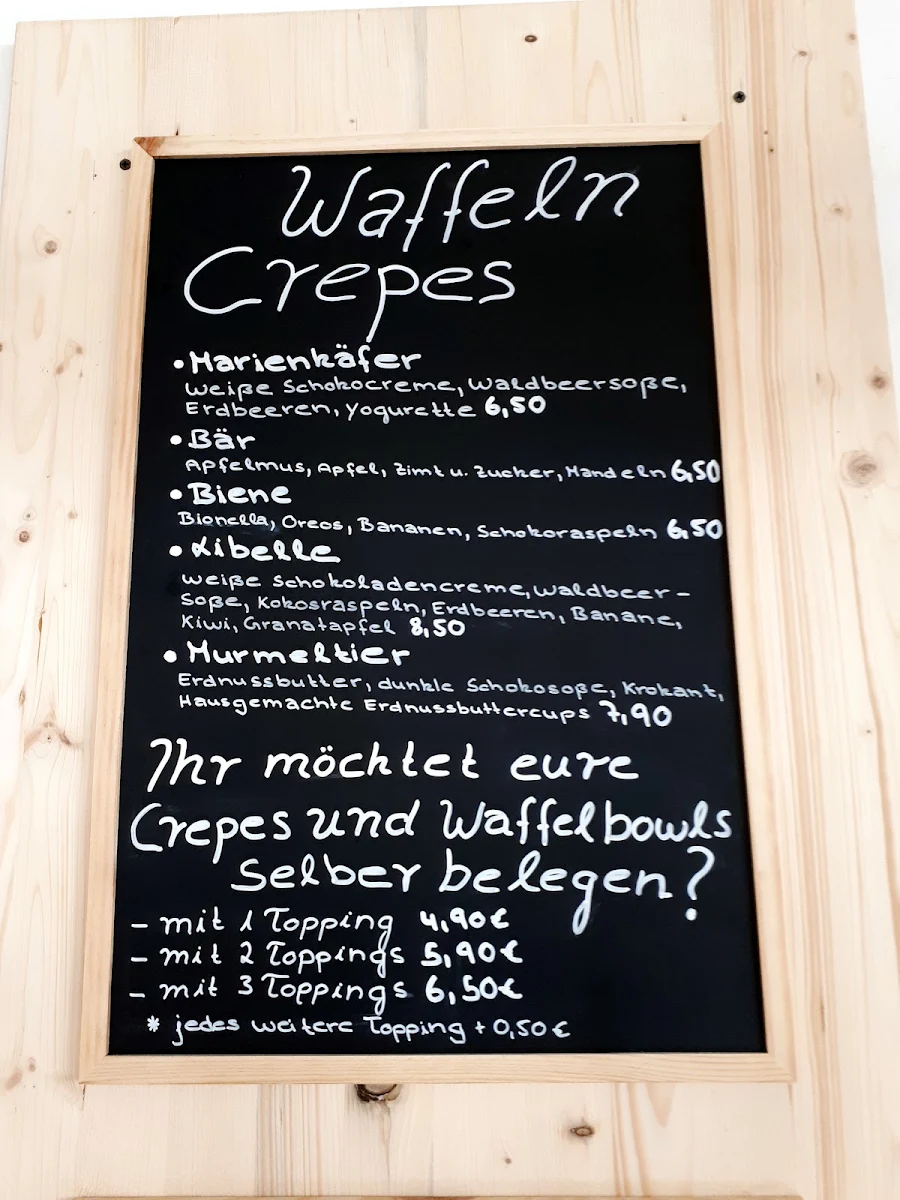 Waffeln
Crepes
• Marienkäfer
weiße Schokocreme, Waldbeersoße,
Erdbeeren, Yogurette 6,50
• Bär
Apfelmus, Apfel, Zimt u. Zucker, Mandeln 6,50
• Biene
Bionella, Oreos, Bananen, Schokoraspeln 6,50
• Libelle
weiße Schokoladencreme, Waldbeer-
Soße, Kokosraspeln, Erdbeeren, Banane,
Kiwi, Granatapfel 8,50
• Murmeltier
Erdnussbutter, dunkle Schokosoße, Krokant,
Hausgemachte Erdnussbuttercups 7,90
Ihr möchtet eure
Crepes und Waffelbowls
selber belegen?
- mit 1 Topping 4,90€
- mit 2 Toppings 5,90€
- mit 3 Toppings 6,50€
* jedes weitere Topping + 0,50€